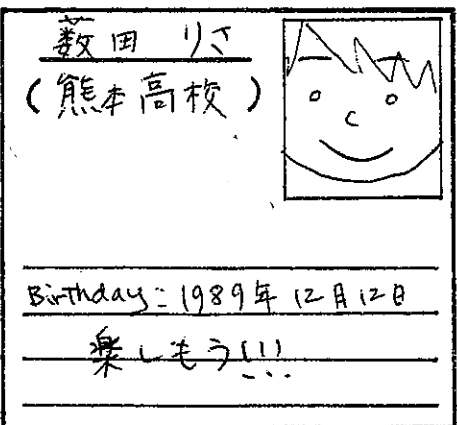 薮田 りさ
(熊本高校)
Birthday: 1989年12月12日
楽しもう!!!